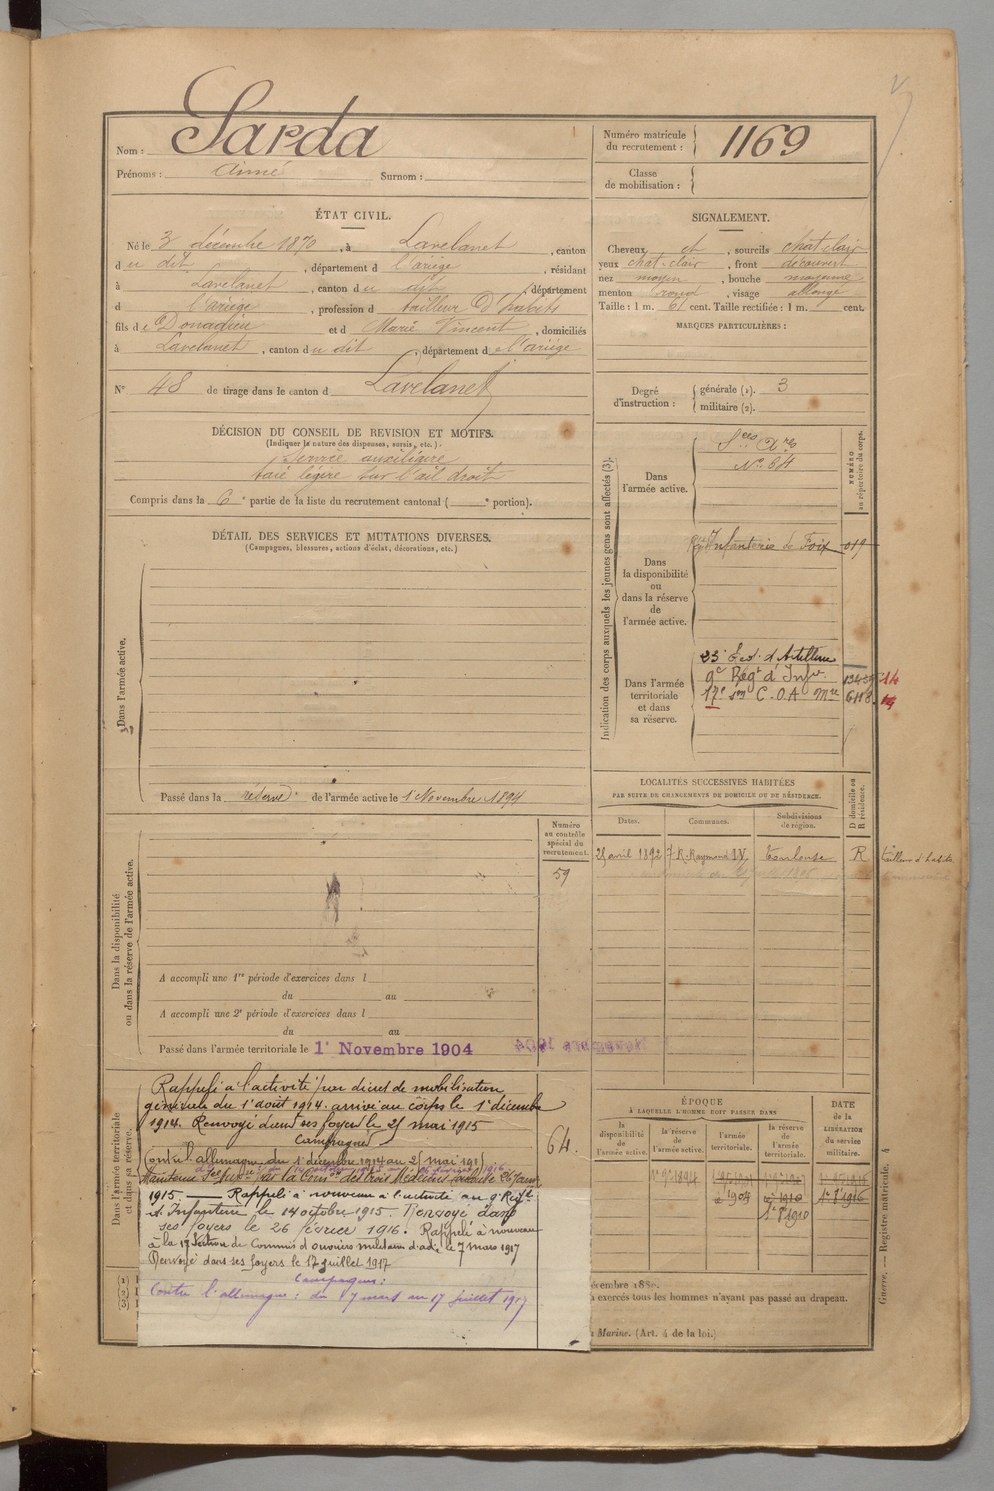 Nom : Sarda
Prénoms : Aimé Surnom :
Numéro matricule du recrutement : 1169
Classe de mobilisation :
ÉTAT CIVIL.
Né le 3 décembre 1870, à Lavelanet, canton
du dit, département d l'ariège, résidant
à Lavelanet, canton du dit, département
d l'ariège, profession de tailleur d'habits
fils de Donadieu et d Marie Vincent, domiciliés
à Lavelanet, canton du dit, département de l'ariège
N° 48 de tirage dans le canton d Lavelanet
DÉCISION DU CONSEIL DE REVISION ET MOTIFS.
(Indiquer la nature des dispenses, sursis, etc.).
Service auxiliaire
taie légère sur l'œil droit
Compris dans la 6e partie de la liste du recrutement cantonal ( e portion).
SIGNALEMENT.
Cheveux et, sourcils chat-clair
yeux chat-clair, front découvert
nez moyen, bouche moyenne
menton rond, visage allongé
Taille : 1 m. 61 cent. Taille rectifiée : 1 m. cent.
MARQUES PARTICULIÈRES :
Degré d'instruction : générale (1). 3
militaire (2).
DÉTAIL DES SERVICES ET MUTATIONS DIVERSES.
(Campagnes, blessures, actions d'éclat, décorations, etc.)
Dans l'armée active.
Passé dans la réserve de l'armée active le 1 Novembre 1894
Indication des corps auxquels les jeunes gens sont affectés (3).
NUMÉRO au répertoire du corps.
Dans l'armée active.
Sces Ares
N° 64
Dans la disponibilité ou dans la réserve de l'armée active.
Rgt Infanterie de Foix 019
Dans l'armée territoriale et dans sa réserve.
23e d'Artillerie
9e Régt d'Infie
17e son C.O.A. Mre 6118
LOCALITÉS SUCCESSIVES HABITÉES
PAR SUITE DE CHANGEMENTS DE DOMICILE OU DE RÉSIDENCE.
Dates. Communes. Subdivisions de région. D domicile ou R résidence.
7 R. Raymond IV Toulouse R tailleur d'habits
Dans la disponibilité ou dans la réserve de l'armée active.
Numéro au contrôle spécial du recrutement.
59
A accompli une 1re période d'exercices dans l
du au
A accompli une 2e période d'exercices dans l
du au
Passé dans l'armée territoriale le 1er Novembre 1904
Dans l'armée territoriale et dans sa réserve.
64
Rappelé à l'activité par décret de mobilisation
générale du 1er août 1914. arrivé au corps le 1er décembre
1914. Renvoyé dans ses foyers le 25 mai 1915
Campagnes
Contre l'allemagne du 1er décembre 1914 au 25 mai 1915
1915. — Rappelé à nouveau à l'activité au 9e Régt
d'Infanterie le 14 octobre 1915. Renvoyé dans
ses foyers le 26 février 1916. Rappelé à nouveau
à la 17 Section de Commis et ouvriers militaires d'adm le 7 mars 1917
Renvoyé dans ses foyers le 17 juillet 1917
Campagnes :
Contre l'allemagne : du 7 mars au 17 juillet 1917
ÉPOQUE
À LAQUELLE L'HOMME DOIT PASSER DANS
la disponibilité de l'armée active. la réserve de l'armée active. l'armée territoriale. la réserve de l'armée territoriale.
DATE de la LIBÉRATION du service militaire.
1904 1910
écembre 188
exercés tous les hommes n'ayant pas passé au drapeau.
Marine. (Art. 4 de la loi.)
Guerre. — Registre matricule. 4